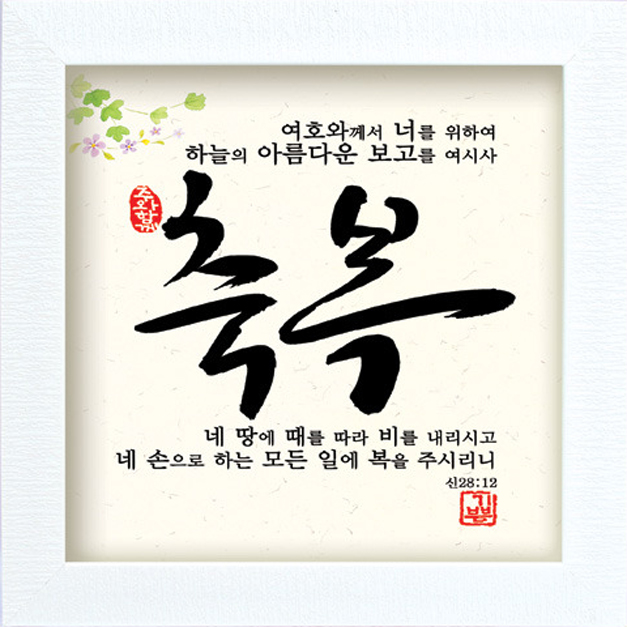 여호와께서 너를 위하여
하늘의 아름다운 보고를 여시사
주와함께
축복
네 땅에 때를 따라 비를 내리시고
네 손으로 하는 모든 일에 복을 주시리니
신28:12
기쁨